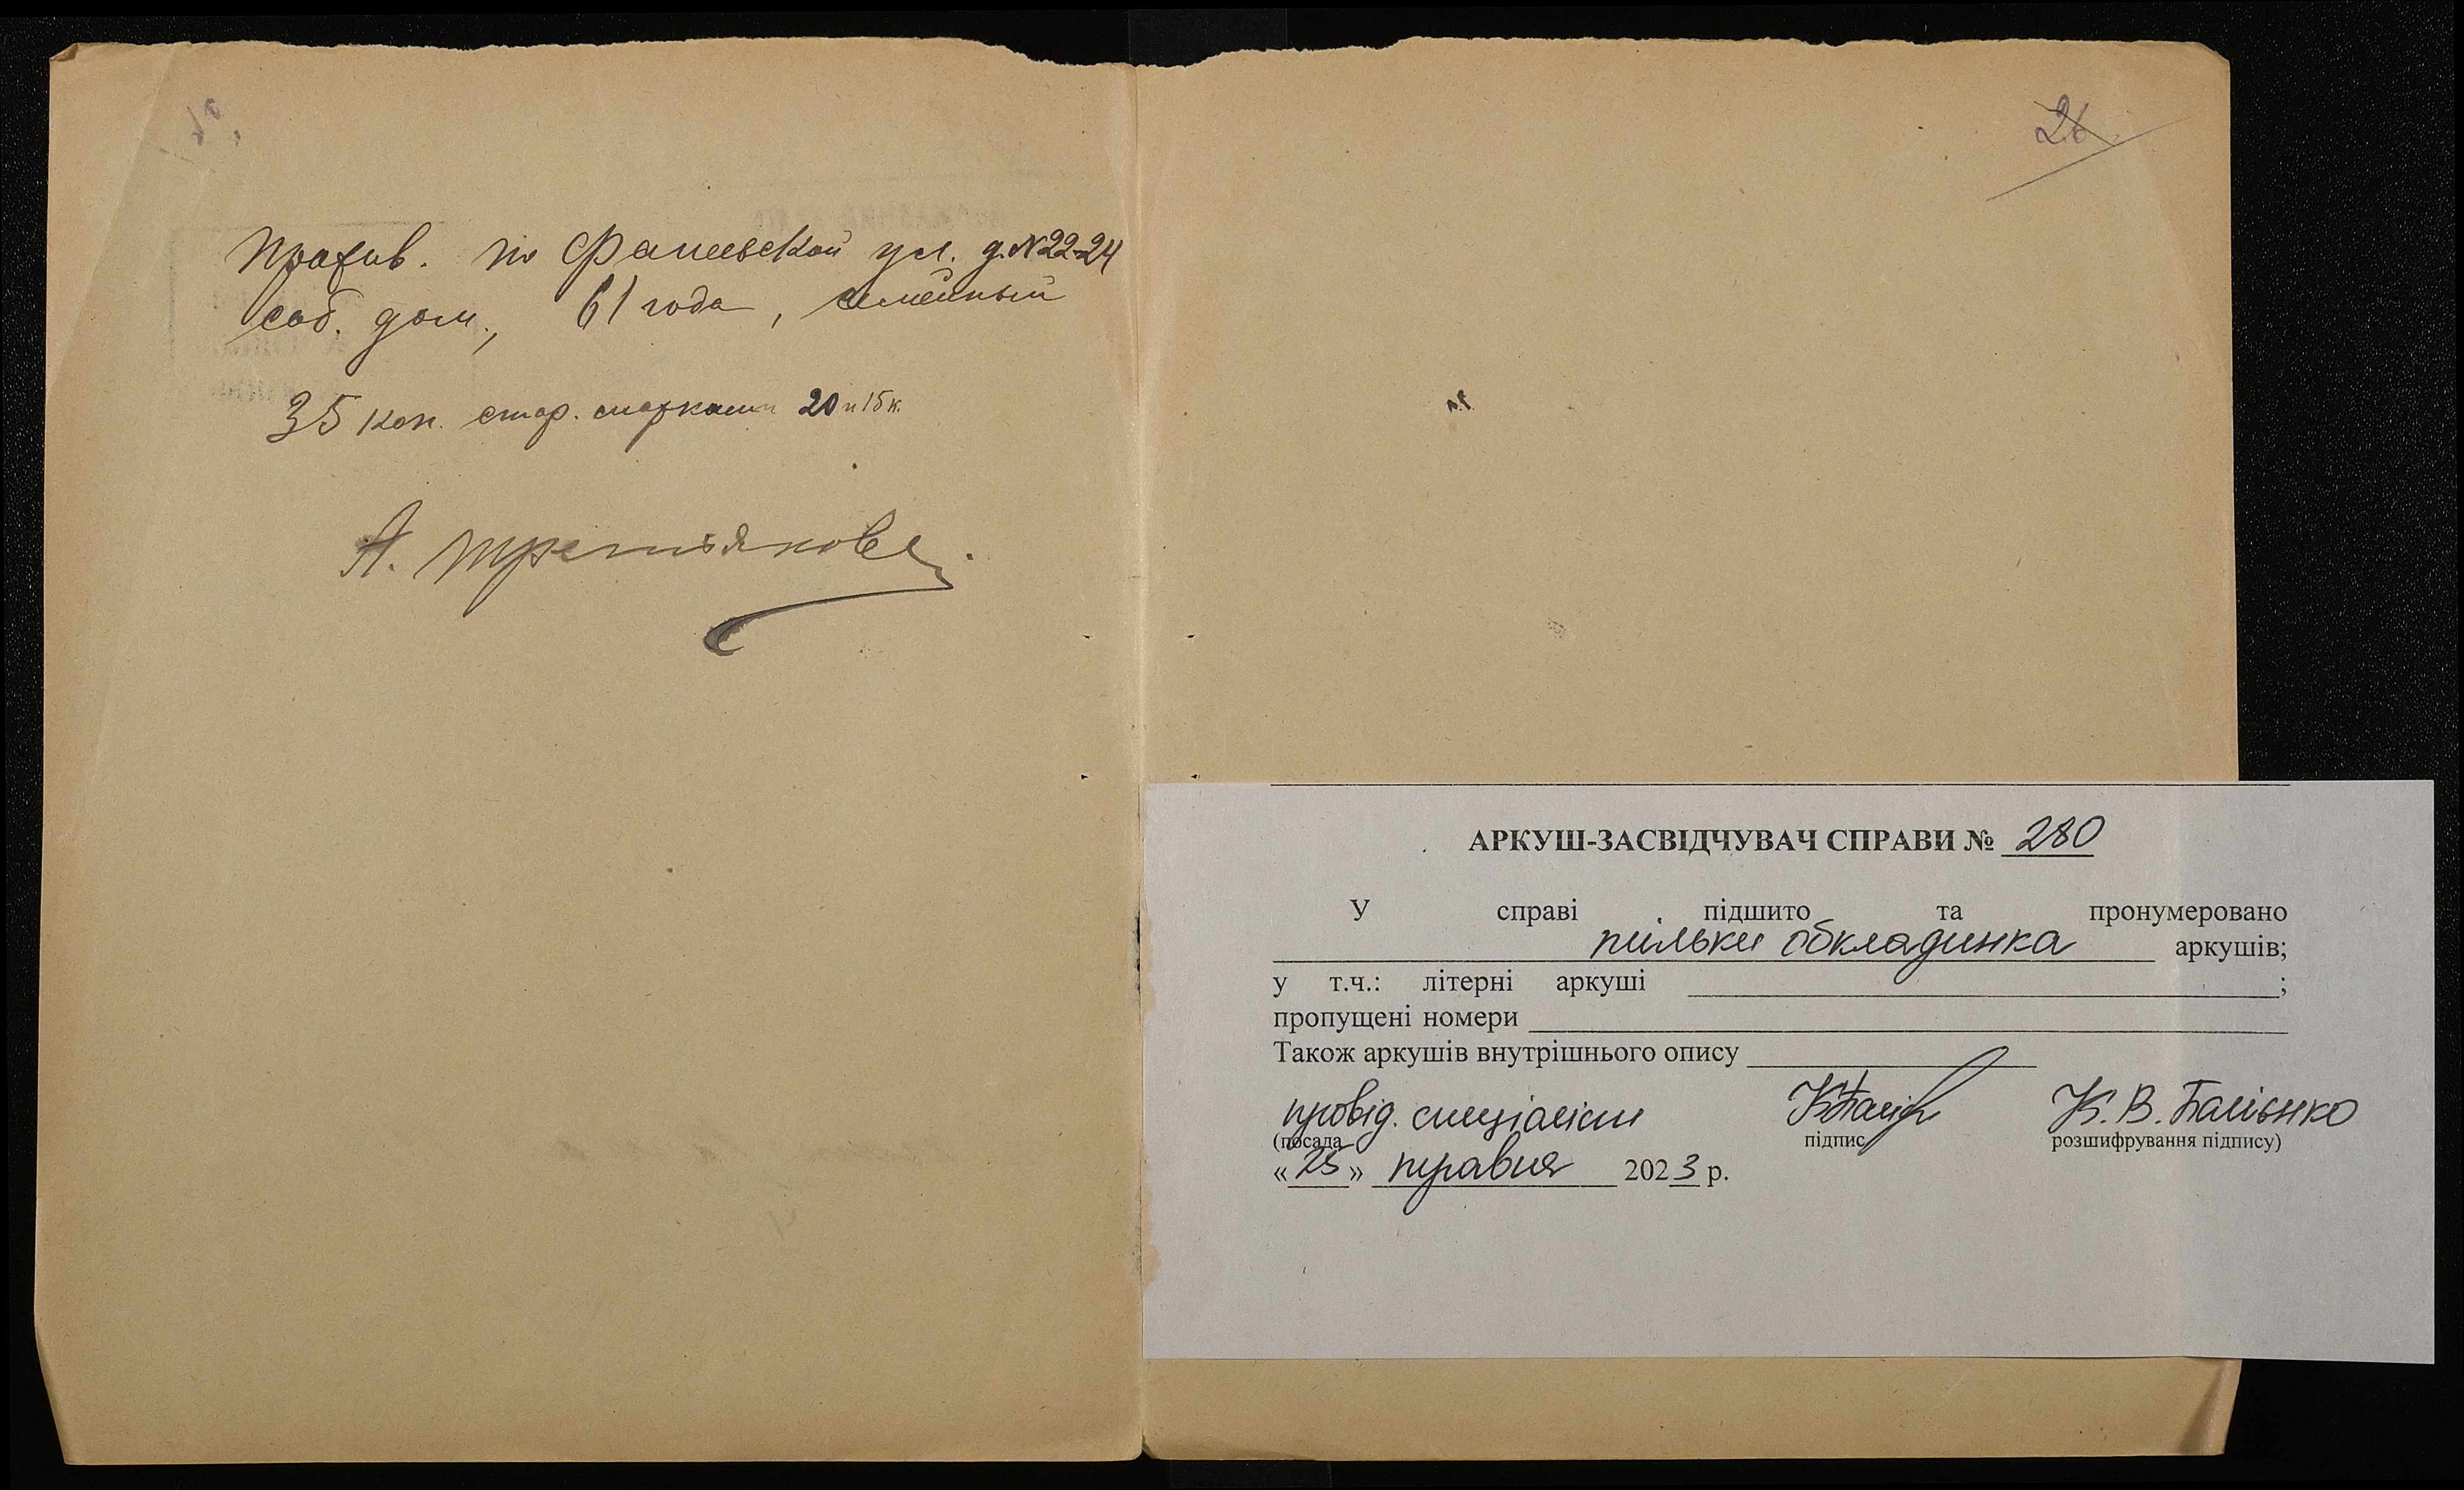 Прожив. по Фалеевской ул. д. №22-24
соб. дом., 61 года, семейный
35 коп. стар. марками 20 и 15 к.
А. Третьякова.
26
АРКУШ-ЗАСВІДЧУВАЧ СПРАВИ № 280
У справі підшито та пронумеровано
тільки обкладинка аркушів;
у т.ч.: літерні аркуші ;
пропущені номери
Також аркушів внутрішнього опису
провід. спеціаліст К. В. Балінко
(посада підпис розшифрування підпису)
«25» травня 2023 р.